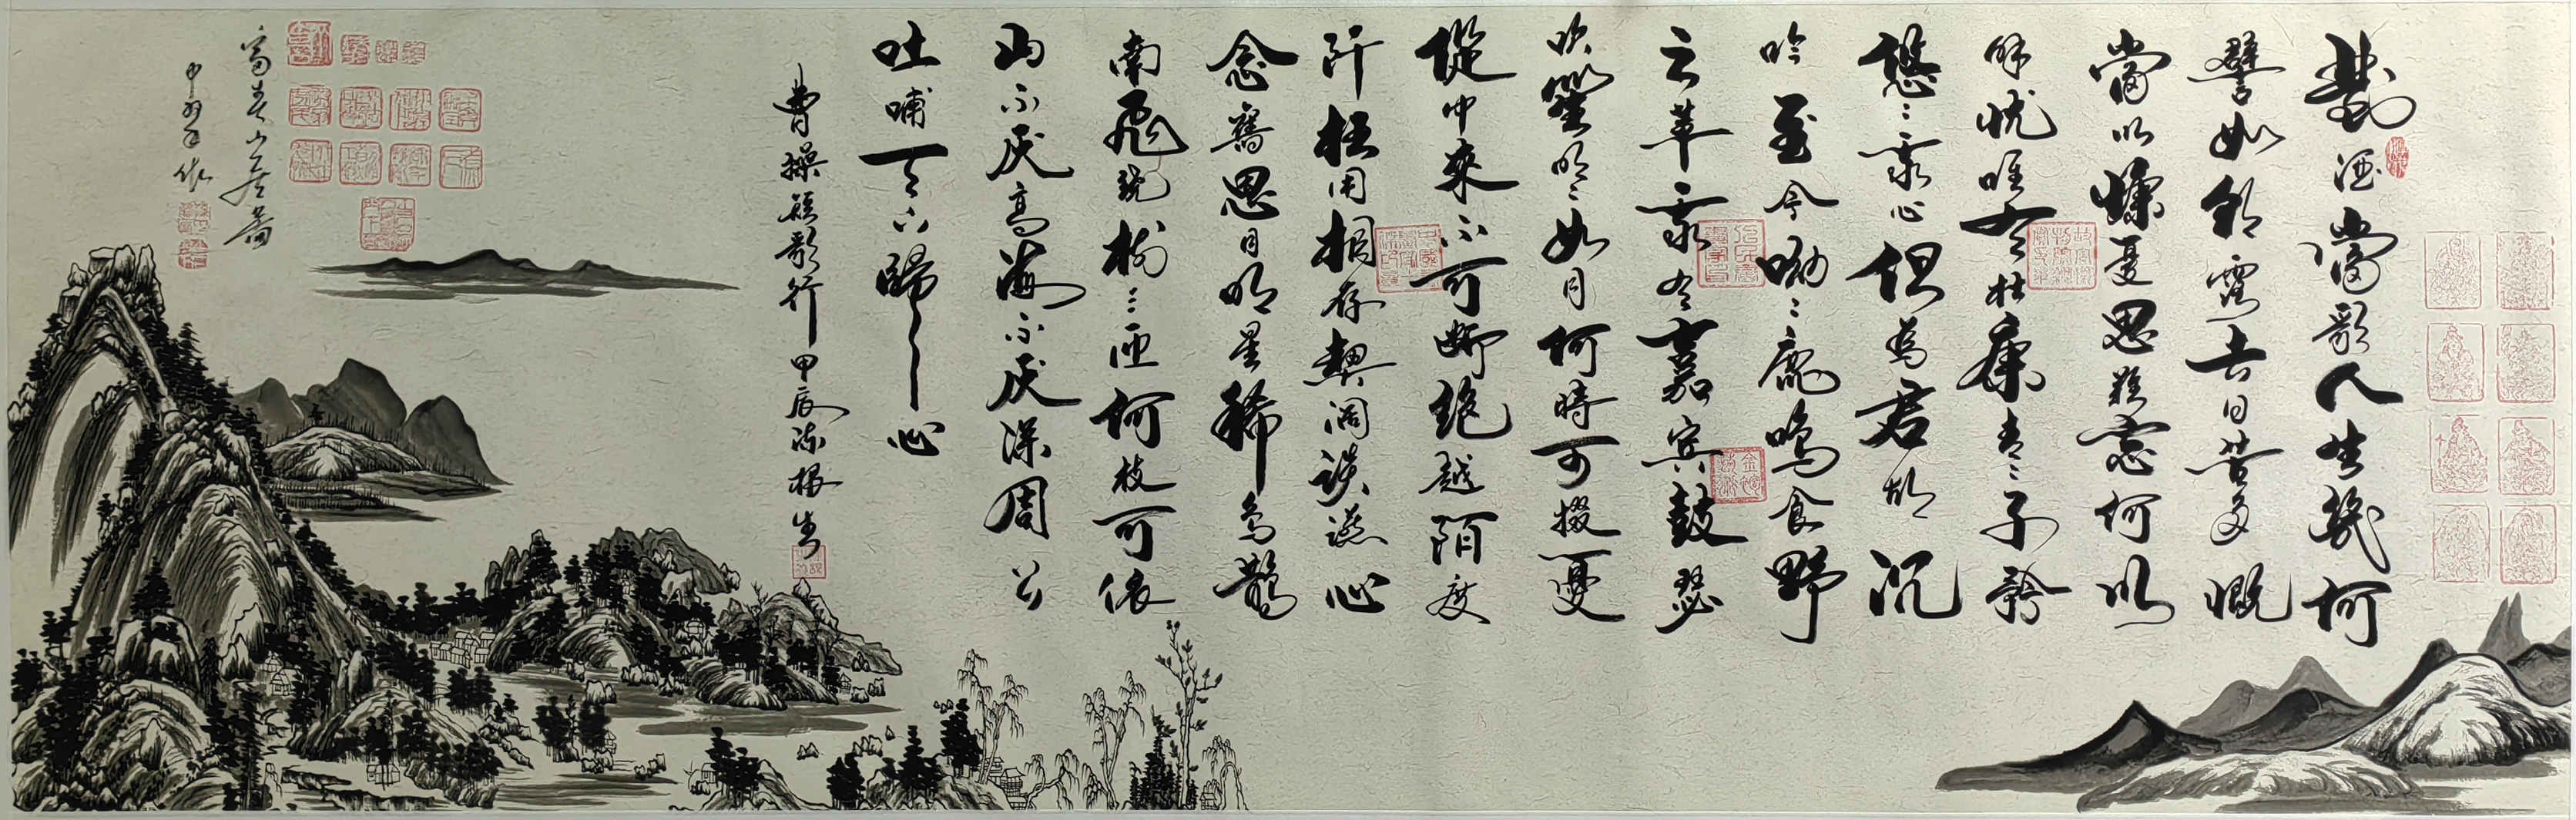 對酒當歌人生幾何
譬如朝露去日苦多慨
當以慷憂思難忘何以
解忧唯有杜康青々子衿
悠々我心但為君故沉
吟至今呦々鹿鳴食野
之苹我有嘉宾鼓瑟
吹笙明々如月何時可掇憂
從中來不可断绝越陌度
阡枉用相存契阔谈讌心
念舊恩月明星稀烏鵲
南飛繞樹三匝何枝可依
山不厌高海不厌深周公
吐哺天下歸心
曹操短歌行甲辰根生
富春山居圖